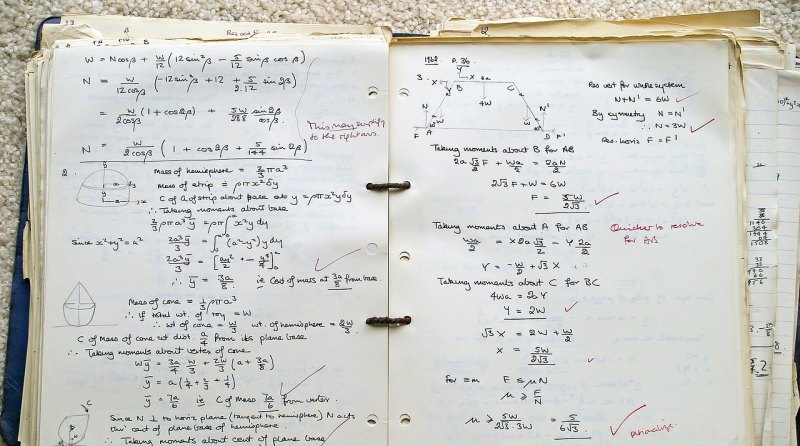 33
W = N cosβ + W/12 (12 sin²β - 5/12 sinβ cosβ)
N = W/12cosβ (-12 sin²β + 12 + 5/2.12 sin 2β)
= W/2cosβ (1 + cos2β) + 5W/288 sin2β/cosβ.
This may simplify
to the right ans.
N = W/2cosβ (1 + cos2β + 5/144 sin2β)
2.
Mass of hemisphere = 2/3 ρπa³
Mass of strip = ρπx²δy
C of G of strip about base is y = ρπx²yδy
∴ Taking moments about base
2/3 ρπa³ȳ = ∫ρπx²y dy
Since x²+y² = a²
2a³ȳ/3 = ∫₀ᵃ (a²-y²)y dy
2a³ȳ/3 = [ay²/2 - y⁴/4]₀ᵃ
∴ ȳ = 3a/8 ie Cent of mass at 3a/8 from base.
Mass of cone = 1/3 ρπa³
∴ If total wt. of toy = W
∴ wt of cone = W/3 wt. of hemisphere = 2W/3
C of Mass of cone at dist. a/4 from its plane base
∴ Taking moments about vertex of cone
Wȳ = 3a/4 W/3 + 2W/3 (a + 3a/8)
ȳ = a(1/4 + 2/3 + 1/4)
ȳ = 7a/6 ie C of Mass 7a/6 from vertex.
Since N ⊥ to horiz plane (tangent to hemisphere) N acts
thr' cent of plane base of hemisphere.
∴ Taking moments about cent of plane base
1968 P. 36
3.
X
Y
2a
B
C
4W
N
N'
W
W
F
A
D
F'
Res vert for whole system
N+N' = 6W
By symmetry N = N'
∴ N = 3W
Res. horiz F = F'
Taking moments about B for AB
2a √3/2 F + Wa/2 = 2aN/2
2√3F + W = 6W
F = 5W/2√3
Taking moments about A for AB
Quicker to resolve
for AB
Wa/2 = X2a√3/2 - Y 2a/2
Y = -W/2 + √3 X
Taking moments about C for BC
4Wa = 2aY
Y = 2W
√3X = 2W + W/2
X = 5W/2√3
for =m F ≤ μN
μ ≥ F/N
μ ≥ 5W/2√3.3W = 5/6√3
rationalize.